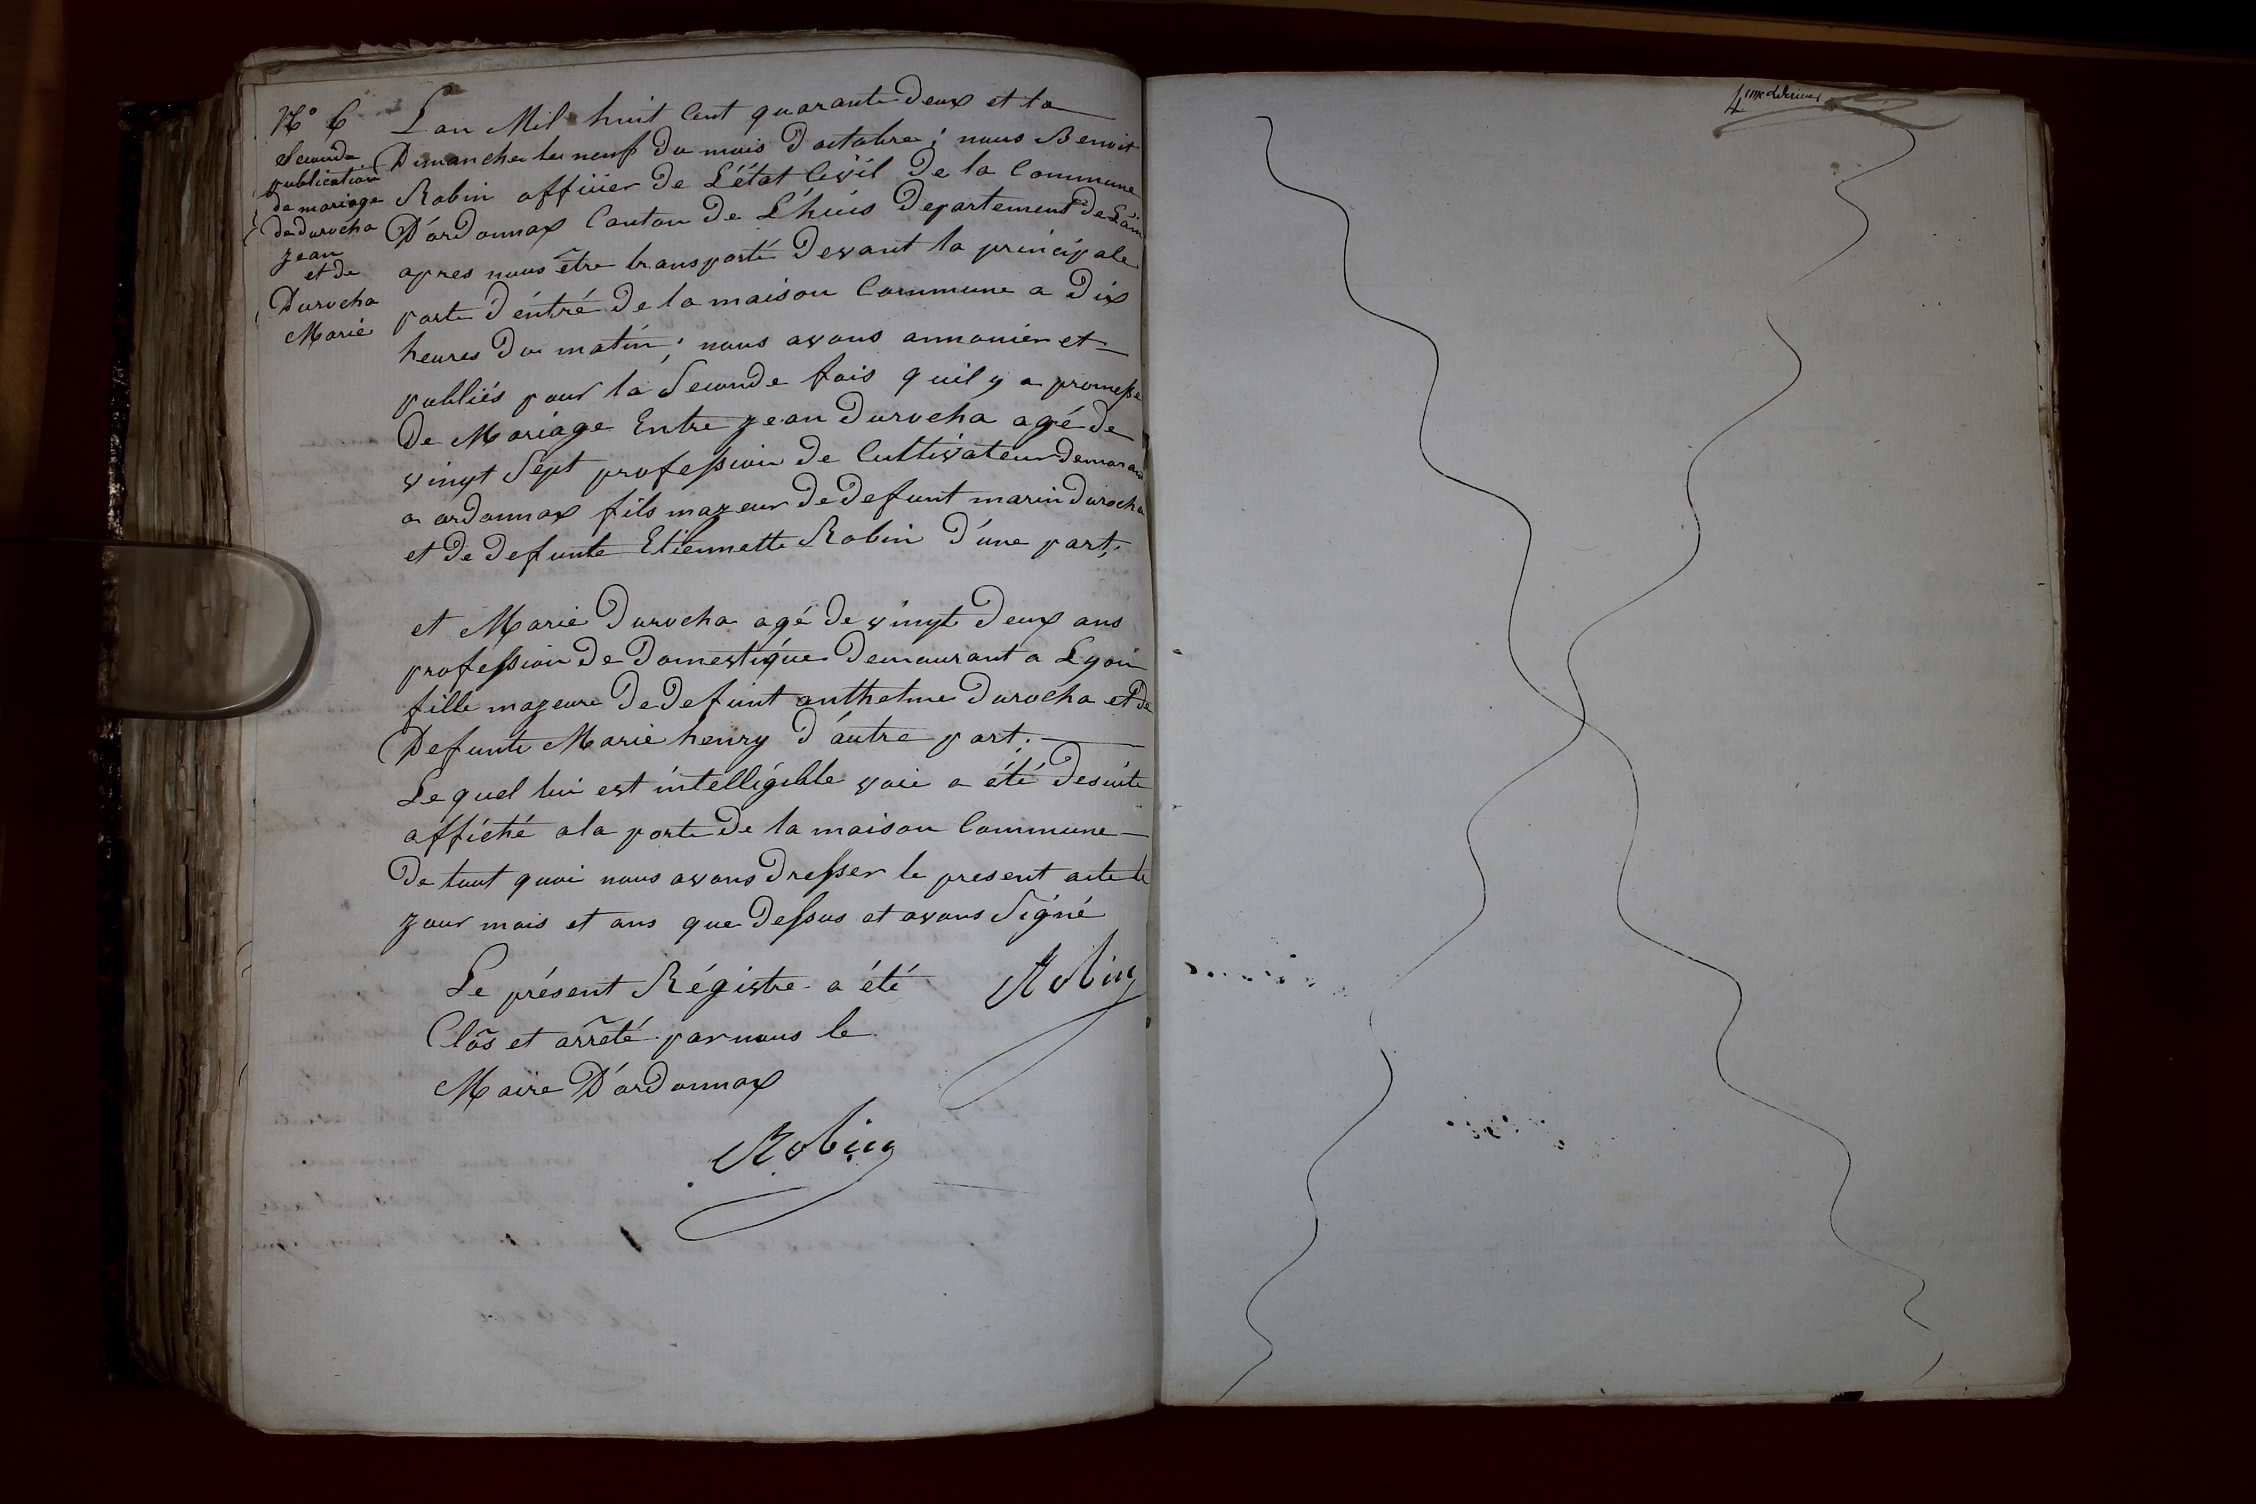 N° 6
Seconde
publication
de mariage
de durocha
jean
et de
Durocha
Marie
Lan Mil huit Cent quarante Deux et la
Dimanche les neuf Du mois D'octobre ; nous Benoit
Robin officier De L'état Civil De la Commune
D'ordonnax Canton De L'huis Departement De L'ain
apres nous être transporté Devant la principale
porte D'éntré De la maison Commune a Dix
heures Du matin ; nous avons annoncer et
publiés pour la Seconde fois quil y a promesse
De Mariage Entre jean Durocha agé de
vingt Sept profession De Cultivateur Demorant
a ordonnax fils majeur De Defunt marin Durocha
et De Defunte Etiennette Robin D'une part,
et Marie Durocha agé De vingt Deux ans
profession De Domestique Demourant a Lyon
fille majeure De Defunt anthelme Durocha et De
Defunte Marie henry D'autre part.
Le quel lui est intelligible voie a été Desuite
affiché a la porte De la maison Commune
De tout quoi nous avons Dresser le present acte le
jour mois et ans que Dessus et avons Signé
Robin
Le présent Régistre a été
Clôs et arrêté par nous le
Maire D'ordonnax
Robin
4me et dernier